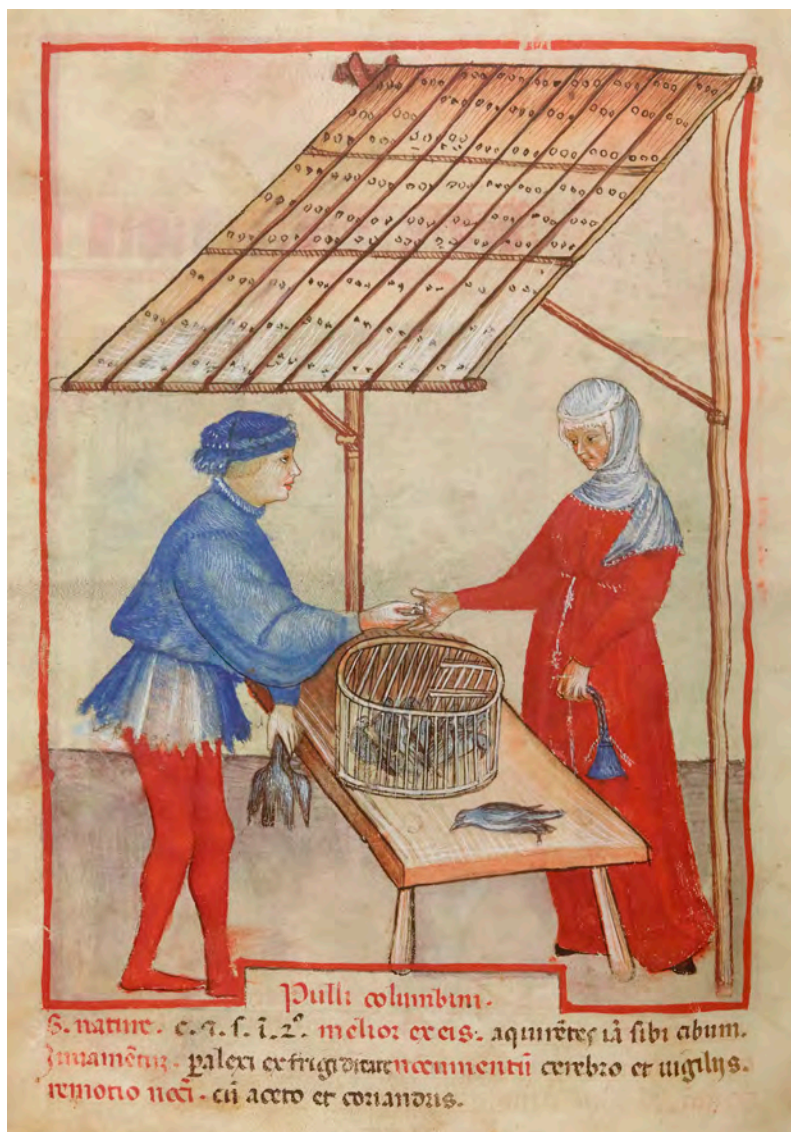 Pulli columbini.
S. nature. c. ⁊. f. ī. 2º. melior ex eis. aquirētes iā sibi cibum.
Iuuamētuz. palexi ex frigiditate nocumentū cerebro et uigilijs.
remotio noci. cū aceto et coriandris.